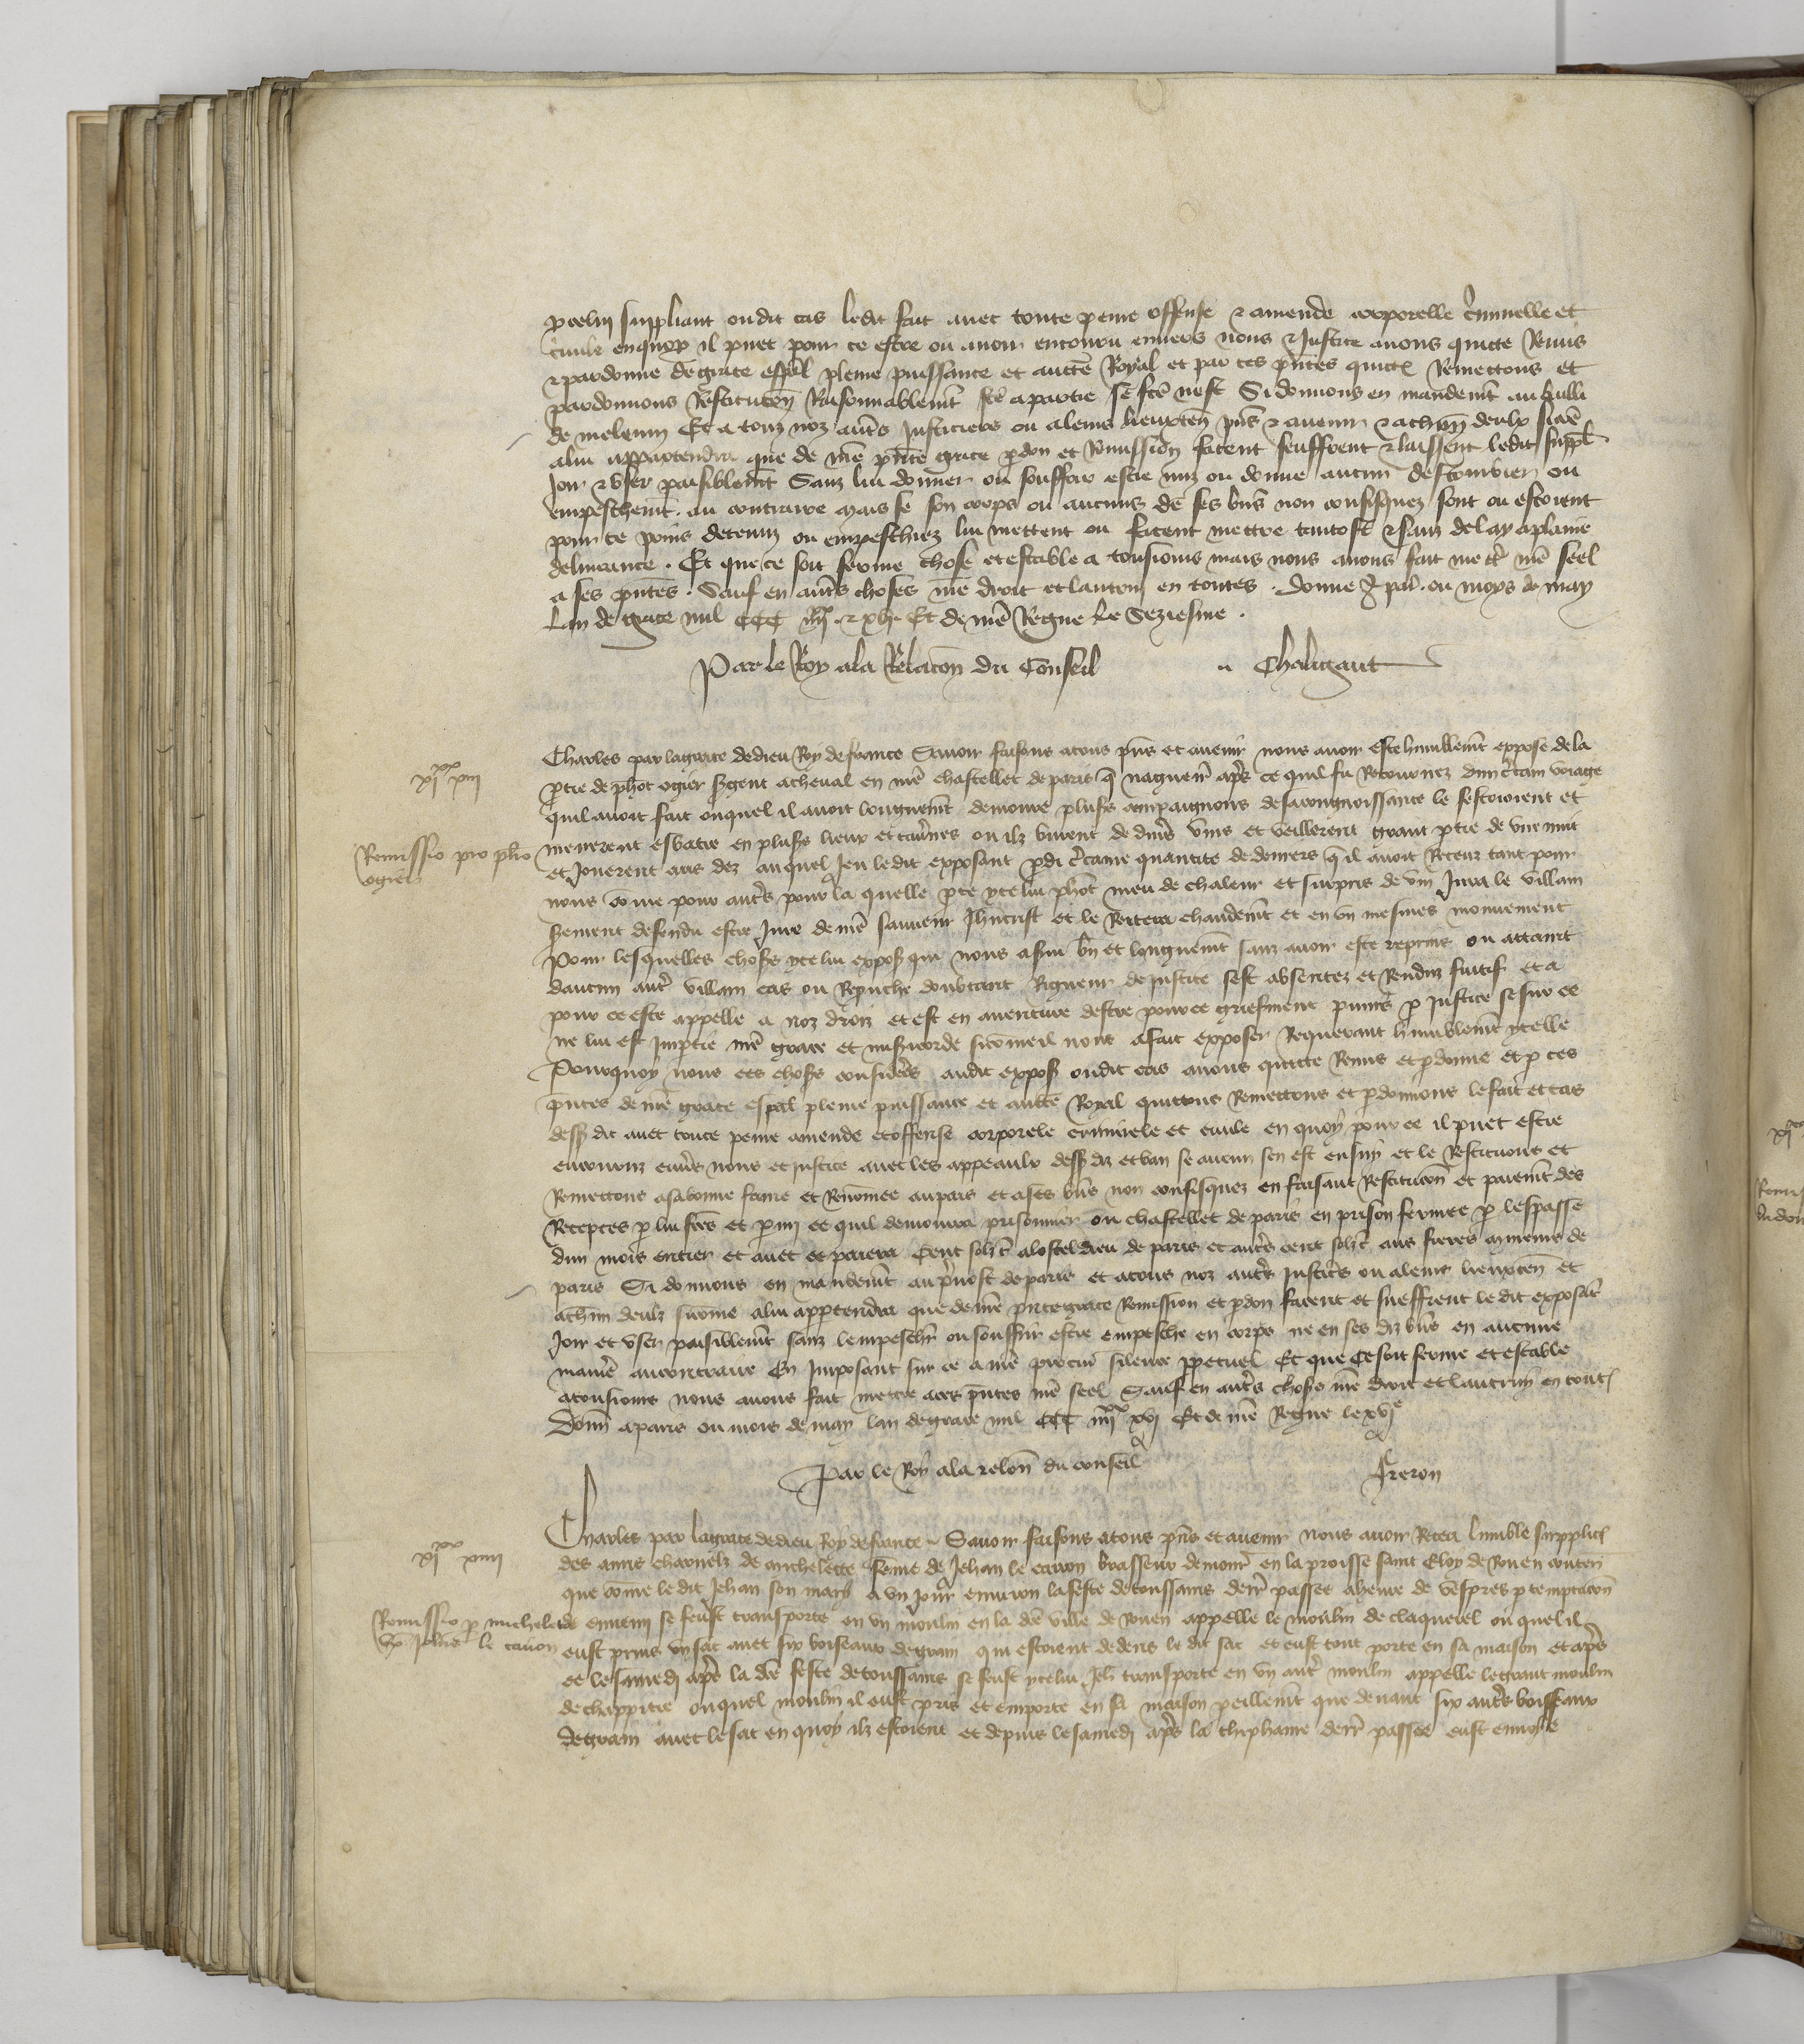 ycelui suppliant ou dit cas ledit fait avec toute peine offense & amende corporelle criminelle et
civile en quoy il puet pour ce estre ou avoir encouru envers nous & Justice avons quicte Remis
& pardonne de grace espal pleine puissance et aucte Royal et par ces pntes quictos Remettons et
pardonnons Restitucon Raisonnablemt fce a partie se fce nest Si donnons en mandemt au bailli
de meleun Et a touz noz autres Justiciers ou a leurs lieuxten pns & avenir & a chun deulx sicoe
a lui appartendra que de nre pnte grace pdon et Remission facent seuffrent & laissent ledit suppl
Joir & user paisiblemt Sanz lui donner ou souffrir estre mis ou donne aucun destourbier ou
empeschemt au contraire mais se son corps ou aucuns de ses bns non confisquez sont ou estoient
pour ce prins detenuz ou empeschiez lui mettent ou facent mettre tantost & sanz delay a plaine
delivrance . Et que ce soit ferme chose et estable a tousiours mais nous avons fait mettre nre seel
a ses pntes . Sauf en autres choses nre droit et lautrui en toutes . donne a par ou moys de may
Lan de grace mil CCC iiijxx & xvj Et de nre Regne le Seziesme .
Par le Roy a la Relacon du Conseil Chaligaut
Charles par la grace de dieu Roy de france Savoir faisons a tous pns et avenir nous avoir este humblemt expose de la
xixx xiij
ptie de phot ogier sgent a cheval en nre chastellet de paris q naguere apres ce quil fu Retournez dun certain voiage
quil avoit fait ou quel il avoit longuemt demoure pluss compaignons de sa congnoissance le festoierent et
Remissio pro pho
ogier
menerent esbatre en pluss lieux et tavernes ou ilz burent de divers vins et veillerent grant ptie de une nuit
et Jouerent aus dez auquel Jeu ledit exposant pdi certaine quantite de deniers q il avoit Receuz tant pour
nous come pour autres pour la quelle pte ycelui phot meu de chaleur et surpris de vin Jura le villain
serement defendu estre Jure de nre sauveur Jhucrist et le Reitera chaudemt et en un mesmes mouvement
Pour lesquelles choses ycelui expos qui nous a servi bn et longuemt sanz avoir este reprins ou attaint
daucun autre villain cas ou Reprouche doubtant Rigueur de justice sest absentez et Renduz fuitif et a
pour ce este appelle a noz droiz et est en aventure destre pour ce griefment puniz p justice se sur ce
ne lui est Impartie nre grace et misericorde sicome il nous a fait exposer Requerant humblemt ycelle
Pourquoy nous ces choses considerees audit expos ou dit cas avons quitte Remis et pdonne et p ces
pntes de nre grace espal pleine puissance et aucte Royal quittons Remettons et pdonnons le fait et cas
dess dit avec toute peine amende et offense corporele criminele et civile en quoy pour ce il puet estre
encouruz envers nous et justice avec les appeaulx dess diz et ban se aucun sen est ensuy et le Restituons et
Remettons a sa bonne fame et Renomee au pais et a ses bns non confisquez en faisant Restitucon et paiemt des
Receptes p lui fces et p my ce quil demourra prisonnier ou chastellet de paris en prison fermee p lespasse
dun mois entier et avec ce paiera Cent solz t a lostel dieu de paris et autres cent solz t aus freres mineurs de
paris Si donnons en mandemt au prevost de paris et a tous noz autres Justiciers ou a leurs lieuxten et
a chun deulz sicome a lui appartendra que de nre pnte grace Remission et pdon facent et sueffrent ledit exposant
Joir et user paisiblemt sanz lempescher ou souffrir estre empesche en corps ne en ses diz bns en aucune
maniere au contraire En Imposant sur ce a nre procur silence ppetuel Et que ce soit ferme et estable
a tousiours nous avons fait mettre a ces pntes nre seel Sauf en autres choses nre droit et lautruy en toutes
Donne a paris ou mois de may lan de grace mil CCC iiijxx xvj Et de nre Regne le xvje
Par le Roy a la relon du conseil Freron
Charles par la grace de dieu Roy de france Savoir faisons a tous pns et avenir Nous avoir Receu lumble supplicon
xixx xiiij
des amis charnelz de michelette feme de Jehan le caron brasseur demour en la proisse saint Eloy de Rouen conten
que come le dit Jehan son mary a un Jour environ la feste de toussains derr passee a heure de vespres p temptacon
Remissio p michelete
ux Johis le caron
de ennemi se feust transporte en un moulin en la dce ville de Rouen appelle le moulin de claquerel ou quel il
eust prins un sac avec six boiseaux de grain qui estoient dedens le dit sac et eust tout porte en sa maison et apres
ce le samedi apres la dce feste de toussains se feust ycelui Jeh transporte en un autre moulin appelle le grant moulin
de chappitre ou quel moulin il eust pris et emporte en sa maison peillemt que devant six autres boisseaux
de grain avec le sac en quoy ilz estoient et depuis le samedi apres la thiphaine derr passee eust envoye